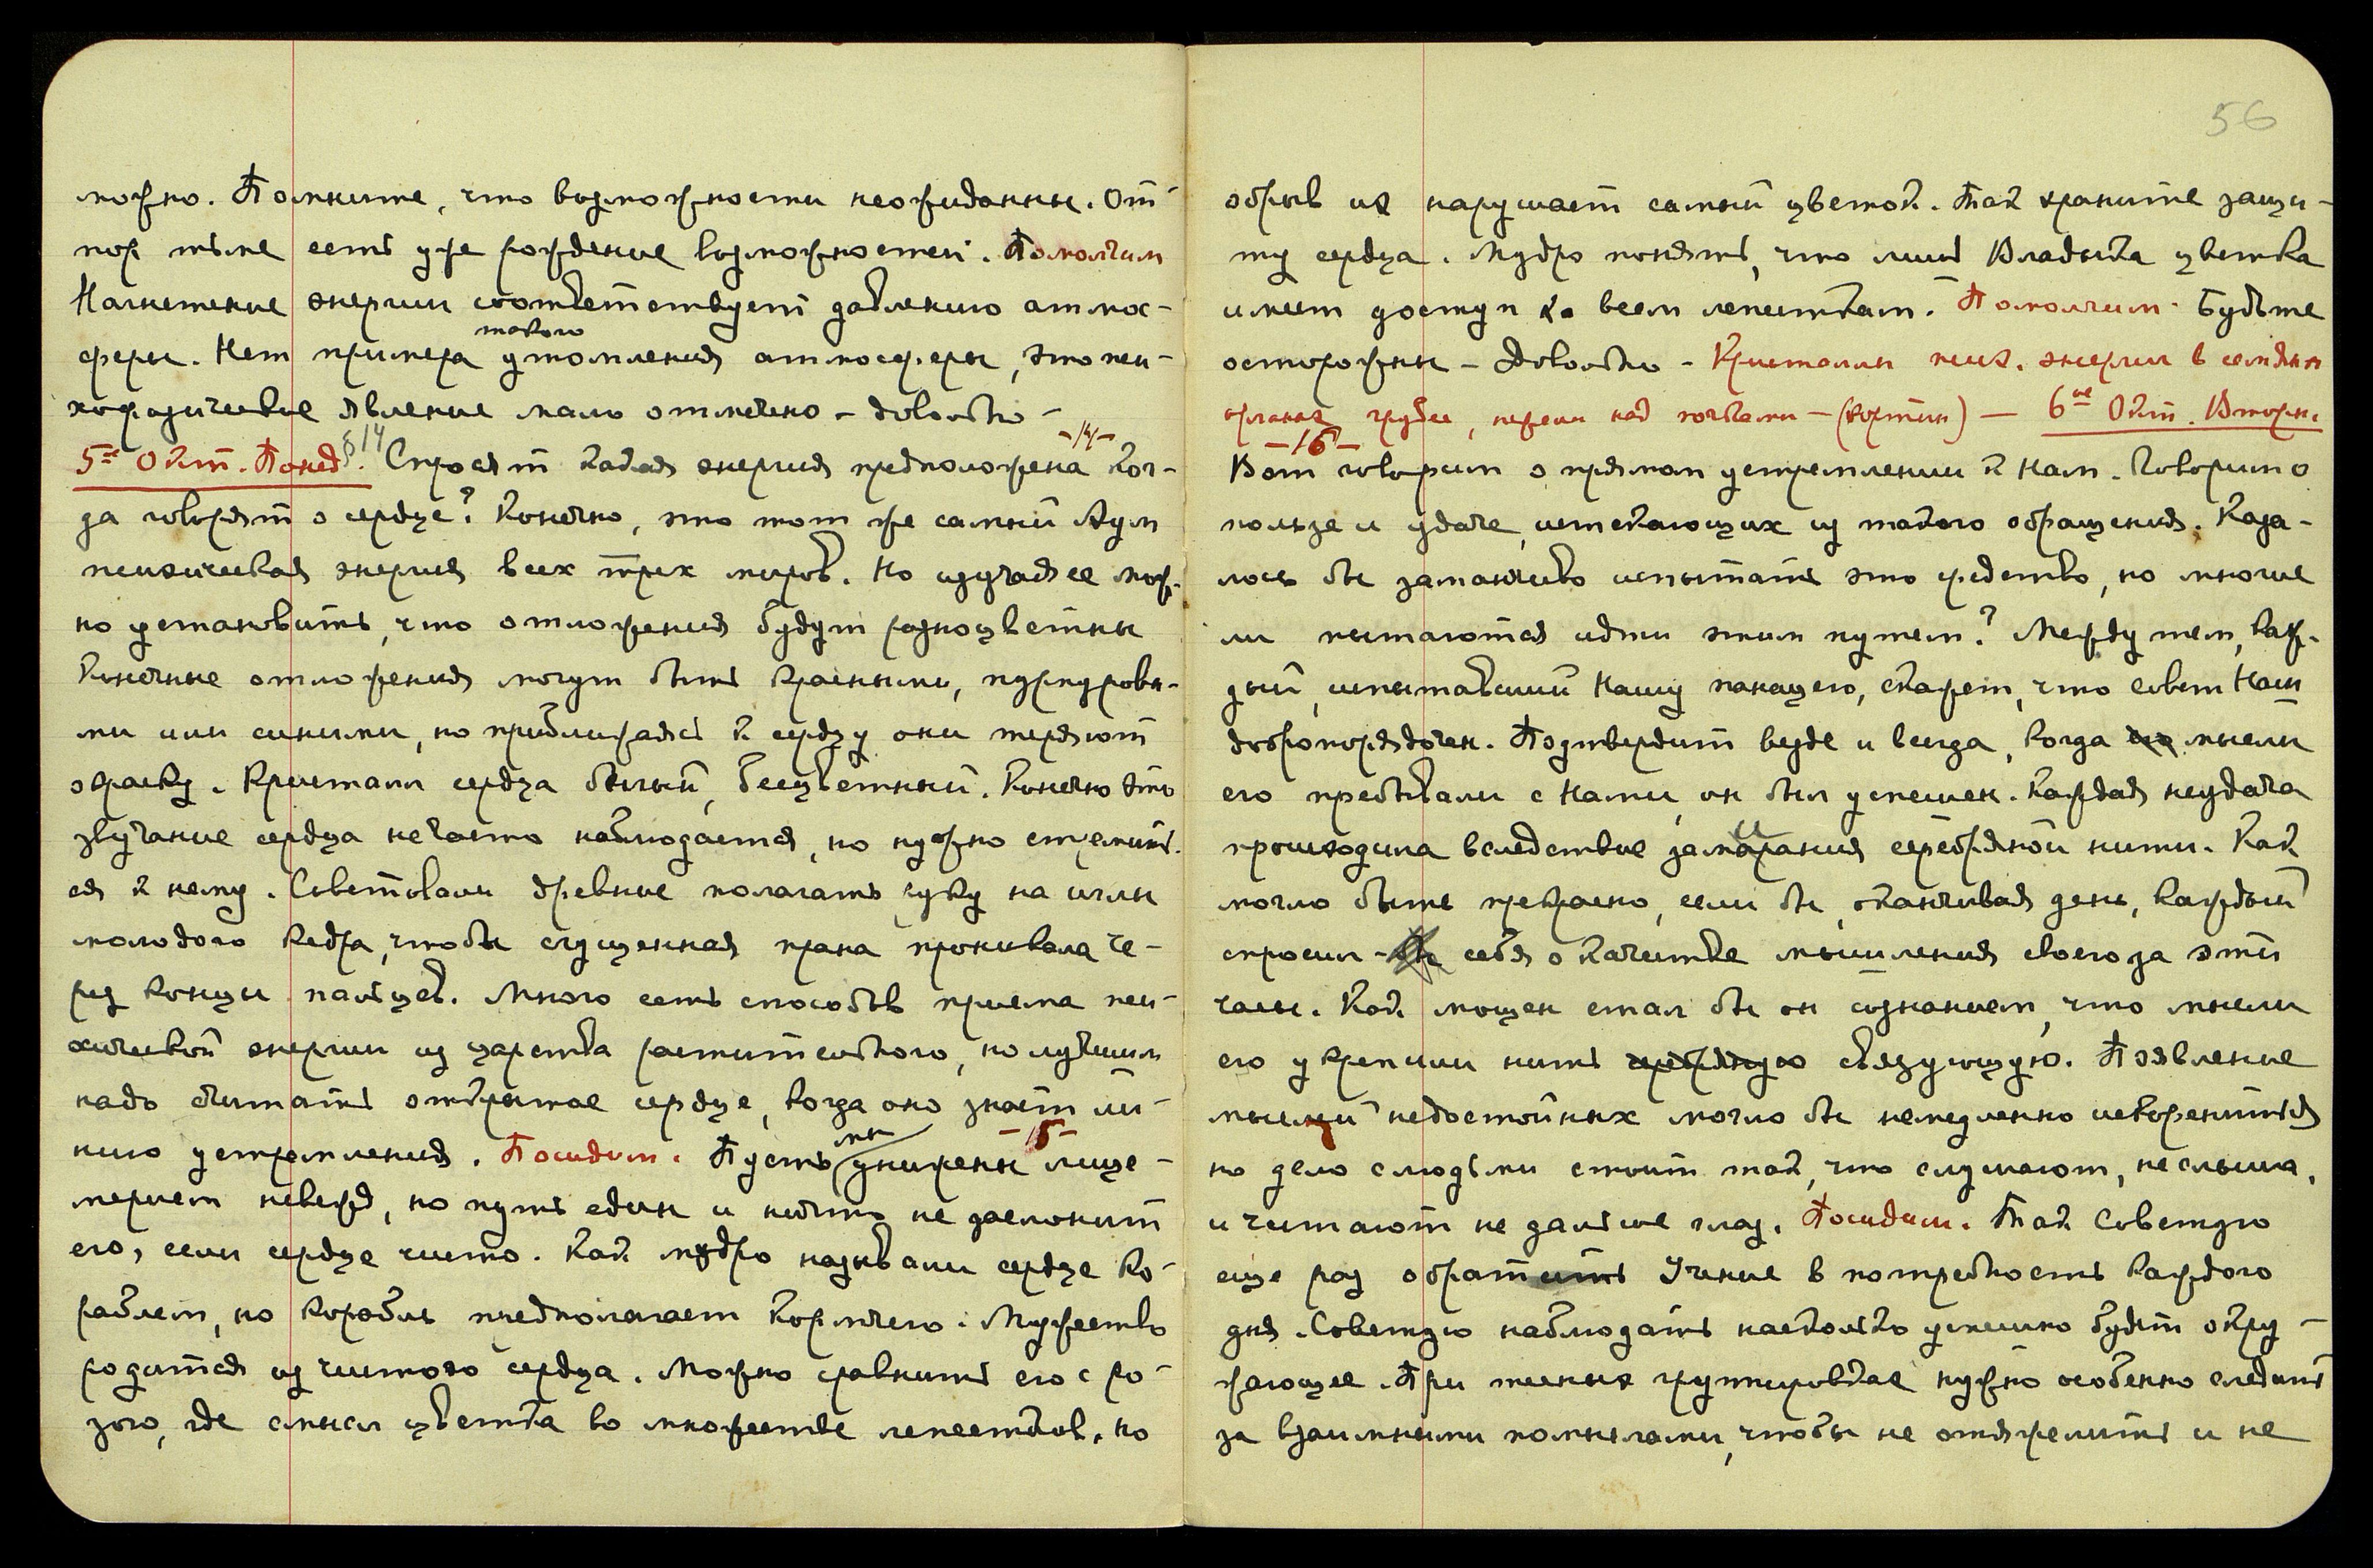 можно. Помните, что возможности неожиданны. От-
пор тьме есть уже рождение возможностей. Помолчим
Нагнетение энергии соответствует давлению атмос-
феры. Нет примера такого утомления атмосферы, это пси-
хофизическое явление мало отмечено – довольно –
5-е Окт. Понед. §14 Спросят какая энергия предположена ког- –14–
да говорят о сердце? Конечно, это тот же самый Аум
психическая энергия всех трех миров. Но изучая ее мож-
но установить, что отложения будут разноцветны
Конечные отложения могут быть красными, пурпуровы-
ми или синими, но приближаясь к сердцу они теряют
окраску. Кристалл сердца белый, бесцветный. Конечно это
звучание сердца не часто наблюдается, но нужно стремить-
ся к нему. Советовали древние полагать руку на иглы
молодого кедра, чтобы сгущенная прана проникала че-
рез концы пальцев. Много есть способов приема пси-
хической энергии из царства растительного, но лучшим
надо считать открытое сердце, когда оно знает ли-
нию устремления. Посидим. Пусть мы унижены лице- –15–
мерием невежд, но путь един и ничто не заслонит
его, если сердце чисто. Как мудро называли сердце ко-
раблем, но корабль предполагает кормчего. Мужество
родится из чистого сердца. Можно сравнить его с ро-
зою, где смысл цветка во множестве лепестков, но
56
обрыв их нарушает самый цветок. Так храните защи-
ту сердца. Мудро понять, что лишь Владыка цветка
имеет доступ ко всем лепесткам. Помолчим. Будьте
осторожны – Довольно – Кристаллы псих. энергии в семянн
органах грубее, нежели над почками – (кортин) – 6-ое Окт. Вторн.
–16–
Вот говорим о прямом устремлении к Нам. Говорим о
пользе и удаче, истекающих из такого обращения. Каза-
лось бы заманчиво испытать это средство, но многие
ли пытаются идти этим путем? Между тем, каж-
дый, испытавший Нашу панацею, скажет, что совет Наш
добропорядочен. Подтвердит везде и всегда, когда его мысли
его пребывали с Нами, он был успешен. Каждая неудача
происходила вследствие замирания серебряной нити. Как
могло быть прекрасно, если бы, оканчивая день, каждый
спросил – бы себя о качестве мышления своего за эти
часы. Как мощен стал бы он сознанием, что мысли
его укрепили нить серебряную связующую. Появление
мыслей недостойных могло бы немедленно искорениться
но дело с людьми стоит так, что слушают, не слыша,
и читают не дальше глаз. Посидим. Так Советую
еще раз обратить Учение в потребность каждого
дня. Советую наблюдать насколько успешно будет окру-
жающее. При тесных группировках нужно особенно следить
за взаимными помыслами, чтобы не отяжелить и не